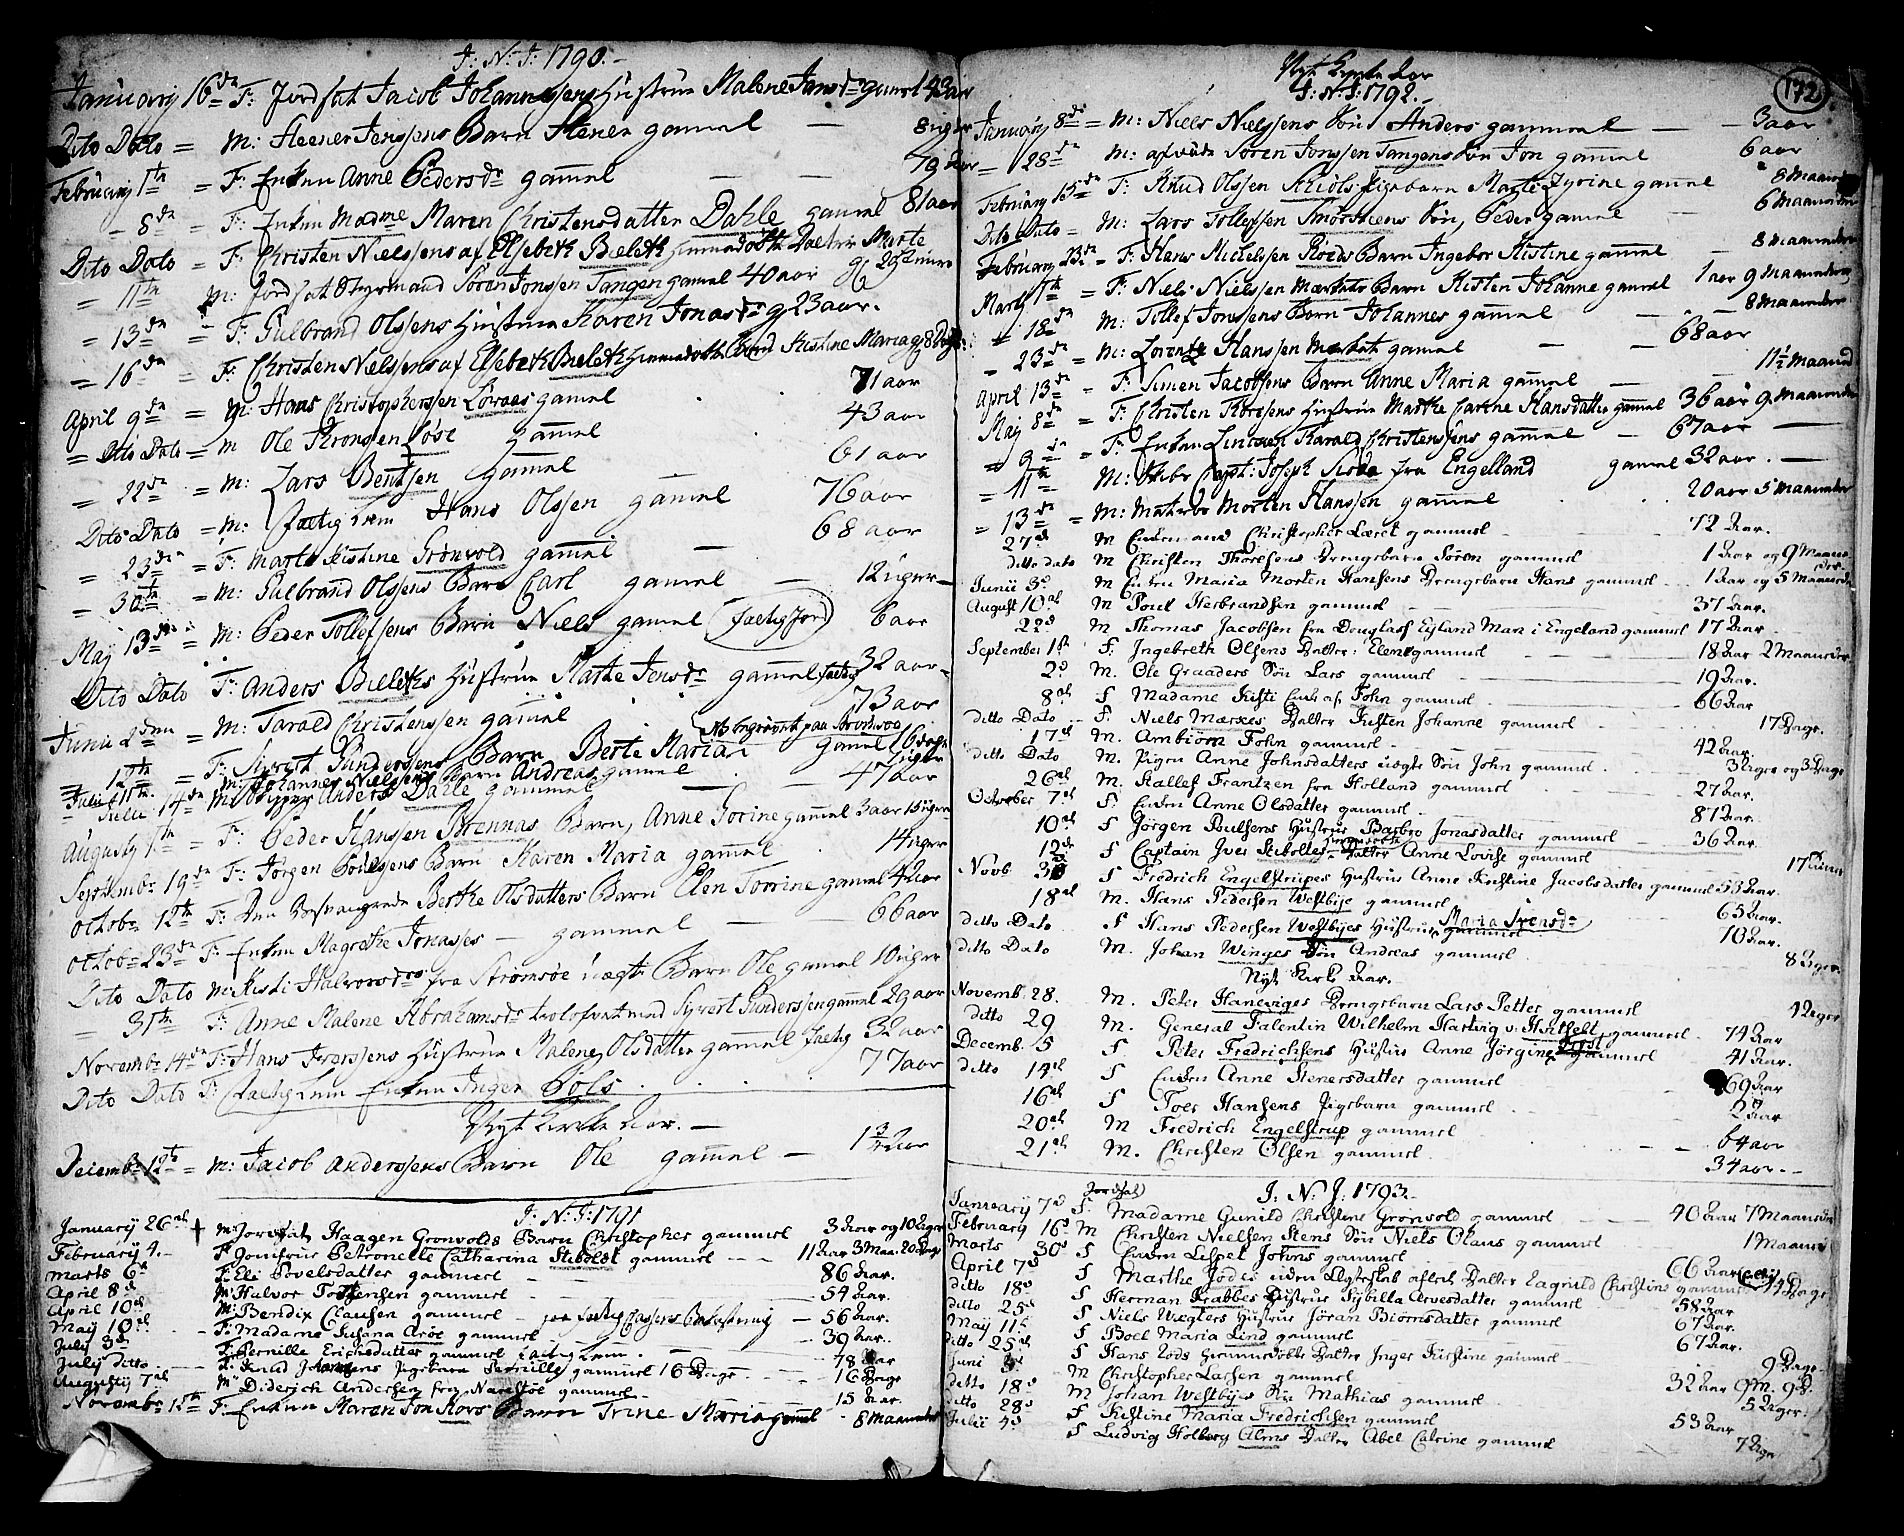 J: N: J: 1790.
Januarÿ 16de F: Jordsat Jacob Johannesens Hustrue Malene Jans dr gaml 43 aar
Dito Dato = M: Steener Jenssens Barn Stener gamel — 8 uger
Februarÿ 1ta = F: Enken Anne Peders dr gamel — — 79 aar
- 8de F: Enken Madme Maren Christensdatter Dahle gamel 81 aar
Dito Dato = F: Christen Nielssens af Elsebeth Bieleth Datter Marte
= 11te M: Jordsat Styrmand Sören Jonssen Tangen gamel 40 aar
= 13de F: Gulbrand Olssens Hustrue Karen Jonas dr g 23 aar.
= 16de = F: Christen Nielssens af Elsebeth Bieleth Kistine Maria g 8 Dage
April 9de = M: Hans Christophersen gamel 71 aar
= Dito Dato = M Ole gamel 43 aar
= 22de = M: Lars Bentsen gamel 61 aar
Dito Dato = M: fattig Lem Hans Olssen gamel 76 aar
= 23de = F: Marte Kistine Grönvold gamel — 68 aar
= 30te = M: Gulbrand Olssens Barn Carl gamel — 12 uger
Maÿ 13de = M: Peder Tollefsens Barn Niels gamel (fattig Jord) 6 aar
Dito Dato F: Anders Bieleths Hustrue Marthe Jens dr gamel fattig 32 aar
Junii 2den = M: Tarald Christenssen gamel 73 aar
= 12te = F: Sivert Gunderssens Barn Berte Maria gamel 16 dage
Julii 11te. M: Johannes Nielssens Barn Andreas gamel uger
Julii 14de M: Skipper Anders Dahle gammel 47 aar
Augusty 1te = F: Peder Hanssen Brennas Barn, Anne Torine gamel 3 aar 15 uger
Septemb: 19de F: Jörgen Poulsens Barn Karen Maria gamel 14 uger
Octob: 12te F: Den Besvangrede Berthe Olsdatters Barn Elen Torrine gamel 4 aar
Octob: 23de F: Enken Magrethe Jonasses — gammel — 66 aar
Dito Dato M: Kisti Halvors dr fra Strömsöe uægte Barn Ole gamel 10 uger
= 31te F: Anne Malene Abrahams dr trolofvet med Syvert Gunderssen gamel 29 aar
Novemb: 14de F: Hans Iverssens Hustrue Malene Olsdatter gammel fattig 32 aar
Dito Dato F: fattig Lem Enken Inger Göls 77 aar
Nyt Kirke Aar. —
Decemb: 12te = M: Jacob Anderssens Barn Ole gamel — 1 3/4 Aar
J: N: J: 1791
Januarÿ 26de M: Jordsat Haagen Gronvolds Barn Christopher gammel 3 Aar og 10 Uger
Februarÿ 4. — F: Jomfrue Petronelle Catharina Stiboldt gammel — 11 Aar 3 Maa. 20 Dage
Marts 6d F: Eli Povelsdatter gammel — 86 Aar.
April 8d M: Halvor Tostensen gammel — 54 Aar.
April 10d M: Bendix Clausen gammel — — 56 Aar.
Maÿ 10d — F: Madame Susana Aröe gammel — 39 Aar.
Julÿ 3d — F: Pernille Erichsdatter gammel fattig Lem. — 78 Aar
Julÿ ditto. — F: Knud Johannsens Pigebarn Pernille gammel 16 Dage — 16 Dage
Augustÿ 7d M: Diderich Andersen fra Narestöe gammel — 15 Aar.
Novemb: 15te F: Enken Maren Jon Kors Barn Trine Maria gamel 8 Maaneder
172
Nyt Kirke Aar
J: N: J: 1792.
Januarÿ 8de = M: Niels Nielssens Sön Anders gammel — 3 aar
= 28de M: afdöde Sören Jonssen Tangens Sön Jon gamel 6 aar
Februarÿ 15de F: Knud Olssen Skiöls Pigebarn Marte Jyrine gamel 8 Maaneder
Dito Dato = M: Lars Tollefssen Smörsteens Sön, Peder gamel — 6 Maaneder
Februarÿ 23de = F: Hans Michelssen Röeds Barn Ingebor Kistine gamel — 8 Maaneder
Marty 1te = F: Niels Nielssen Mærkets Barn Kisten Johanne gamel 1 aar 9 Maaneder
= 18de M: Tollef Jonssens Barn Johannes gamel — 8 Maaneder
= 23de = M: Lorentz Hanssen gamel — 68 aar
April 13de = F: Simen Jacobsens Barn Anne Maria gamel — 11½ Maaned
Maÿ 8de = F: Christen Thoresens Hustrue Marthe Catrine Hansdatter gamel 36 aar 9 Maaneder
= 9de = F: Enken Harald Christensens gamel — 67 aar —
= 11te M: Skibs Capt: Joseph fra Engelland gamel 32 aar. —
= 13de = M: Matros Morten Hanssen gamel 20 aar 5 Maaneder
27d M Enkemand Christopher Læret gammel 72 Aar.
ditto dato M Christen Thoresens Drengebarn Sören gammel 1 Aar og 9 Maaneder
Junii 3d M Enken Maria Morten Hansens Drengebarn Hans gammel 1 Aar og 5 Maaneder
August 10d M Poul Herbrandsen gammel 37 Aar.
22d M Thomas Jacobsen fra Douglass Eyland Man i Engeland gammel 17 Aar
September 1st F: Ingebreth Olsens Datter: Elene gammel 18 Aar 2 Maaneder
2d M. Ole Graaders Sön Lars gammel 19 Aar.
8d F Madame Kisti Enke af Fohn gammel 66 Aar
ditto Dato F. Niels Mærkes Datter Kisten Johanne gammel 17 Dage.
17d M. Arnbiörn Fohn gammel 42 Aar.
ditto Dato M. Pigen Anne Johnsdatters uægte Sön John gammel. 3 Uger og 3 Dage
26d M. Stallef Frantzen fra Holland gammel 27 Aar.
October 7d F. Enken Anne Olsdatter gammel 87 Aar.
10d F Jörgen Poulsens Hustrue Barbro Jonasdatter gammel 36 Aar.
12d F Captain Iver Datter Anne Lovise gammel 17 Timer
Novb 30 F Fredrich Engelstrupes Hustrue Anne Kirstine Jacobsdatter gammel 53 Aar.
18d M. Hans Pedersen Westbÿe gammel 65 Aar.
ditto Dato F Hans Pedersen Westbÿes Hustrue Maria Ivers dr gammel 70 Aar.
ditto Dato M. Johan Winges Sön Andreas gammel 8 Uger
Nyt Kirke Aar.
Novemb. 28. M. Peter Haneviges Drengebarn Lars Petter gammel 4 Uger
ditto 29 M. General Falentin Wilhelm Hartvig v: Huthfelt gammel. 74 Aar
Decemb. 5 F. Peter Fredrichsens Hustrue Anne Jörgine gammel 41 Aar.
ditto 14d F Enken Anne Stenersdatter gammel 69 Aar
16d F Toer Hansens Pigebarn gammel 2 Aar
20d M Fredrich Engelstrup gammel 64 aar
21d M. Christen Olsen gammel 34 aar.
J. N. J. 1793.
Januarÿ 7d F. Jordsat Madame Gunild Christine Grönvold gammel 40 Aar 7 Maaneder
Februarÿ 16d M Christen Nielsen Stens Sön Niels Olaus gammel 1 Maaned
Marts 30d F Enken Lispet Johns gammel 66 Aar
April 7d F Marthe Jodes uden Ægteskab aflede Datter Eagnild Christine gammel 14 Dage
ditto 18d F Herman Krabbes Hustrue Sybilla Arvesdatter gammel 58 Aar
ditto 25d F Niels Wegters Hustrue Jöran Biörnsdatter gammel 67 Aar.
Maÿ 11d F Boel Maria Lind gammel 67 Aar.
ditto 25d F Hans Lods Hiemmedöbte Datter Inger Kirstine gammel 9 Dage
Juni M Christopher Larsen gammel 32 Aar 9 M. 9 D.
ditto 18d M Johan Westbÿes Sön Mathias gammel 5 Uger
ditto 28d F Kistine Maria Fredrichsen gammel 53 Aar
Julii 4d F Ludvig Holberg Alms Datter Abel Catrine gammel 7 Uger